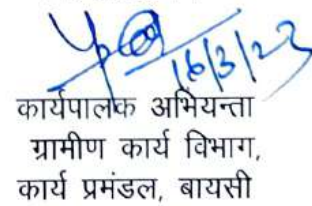 16/3/23
कार्यपालक अभियन्ता
ग्रामीण कार्य विभाग,
कार्य प्रमंडल, बायसी